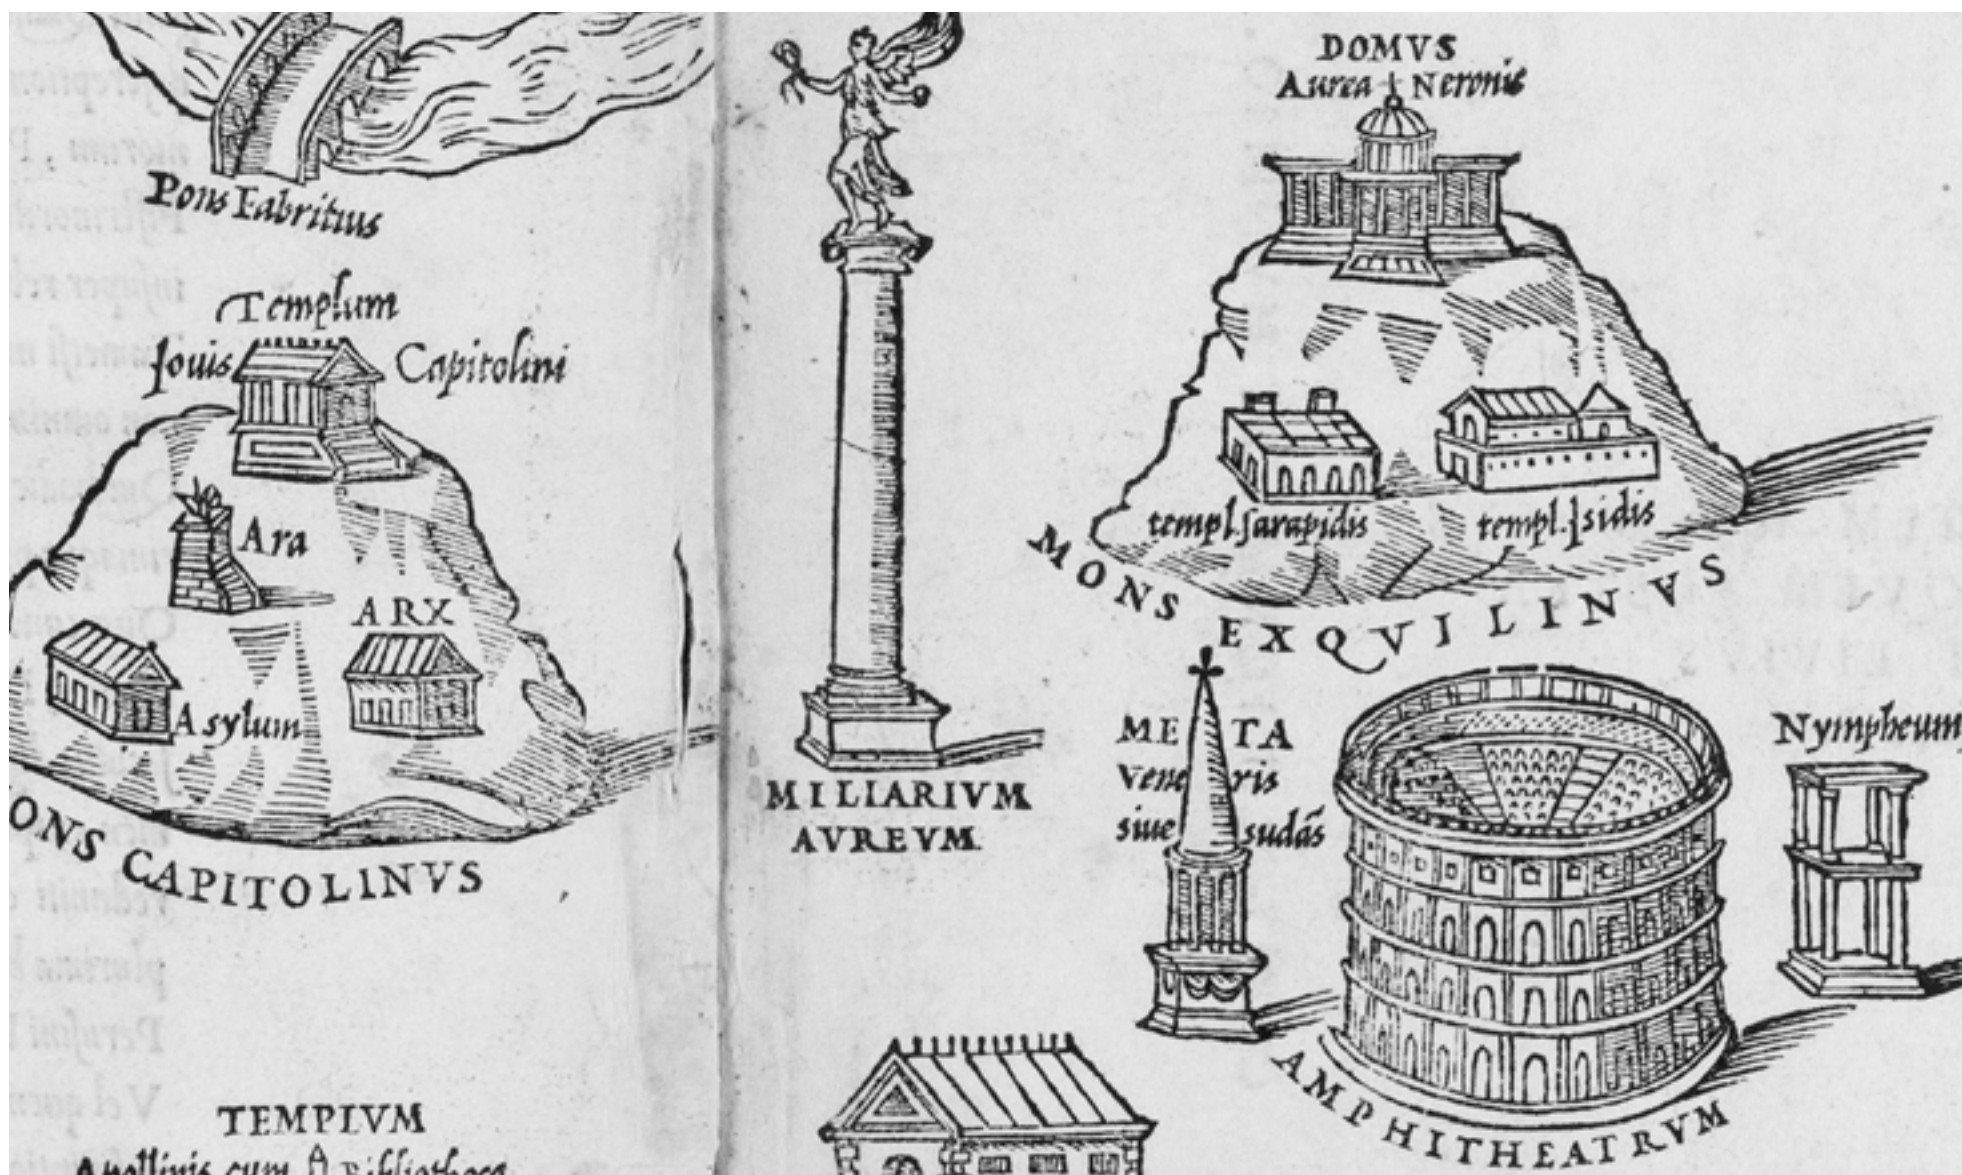 Pons Fabritius
Templum
Jouis Capitolini
Ara
ARX
Asylum
ONS CAPITOLINVS
TEMPLVM
Apollinis cum Bibliotheca
MILIARIVM
AVREVM
DOMVS
Aurea Neronis
templ. sarapidis
templ. Jsidis
MONS EXQVILINVS
META
Veneris
siue sudãs
AMPHITHEATRVM
Nympheum